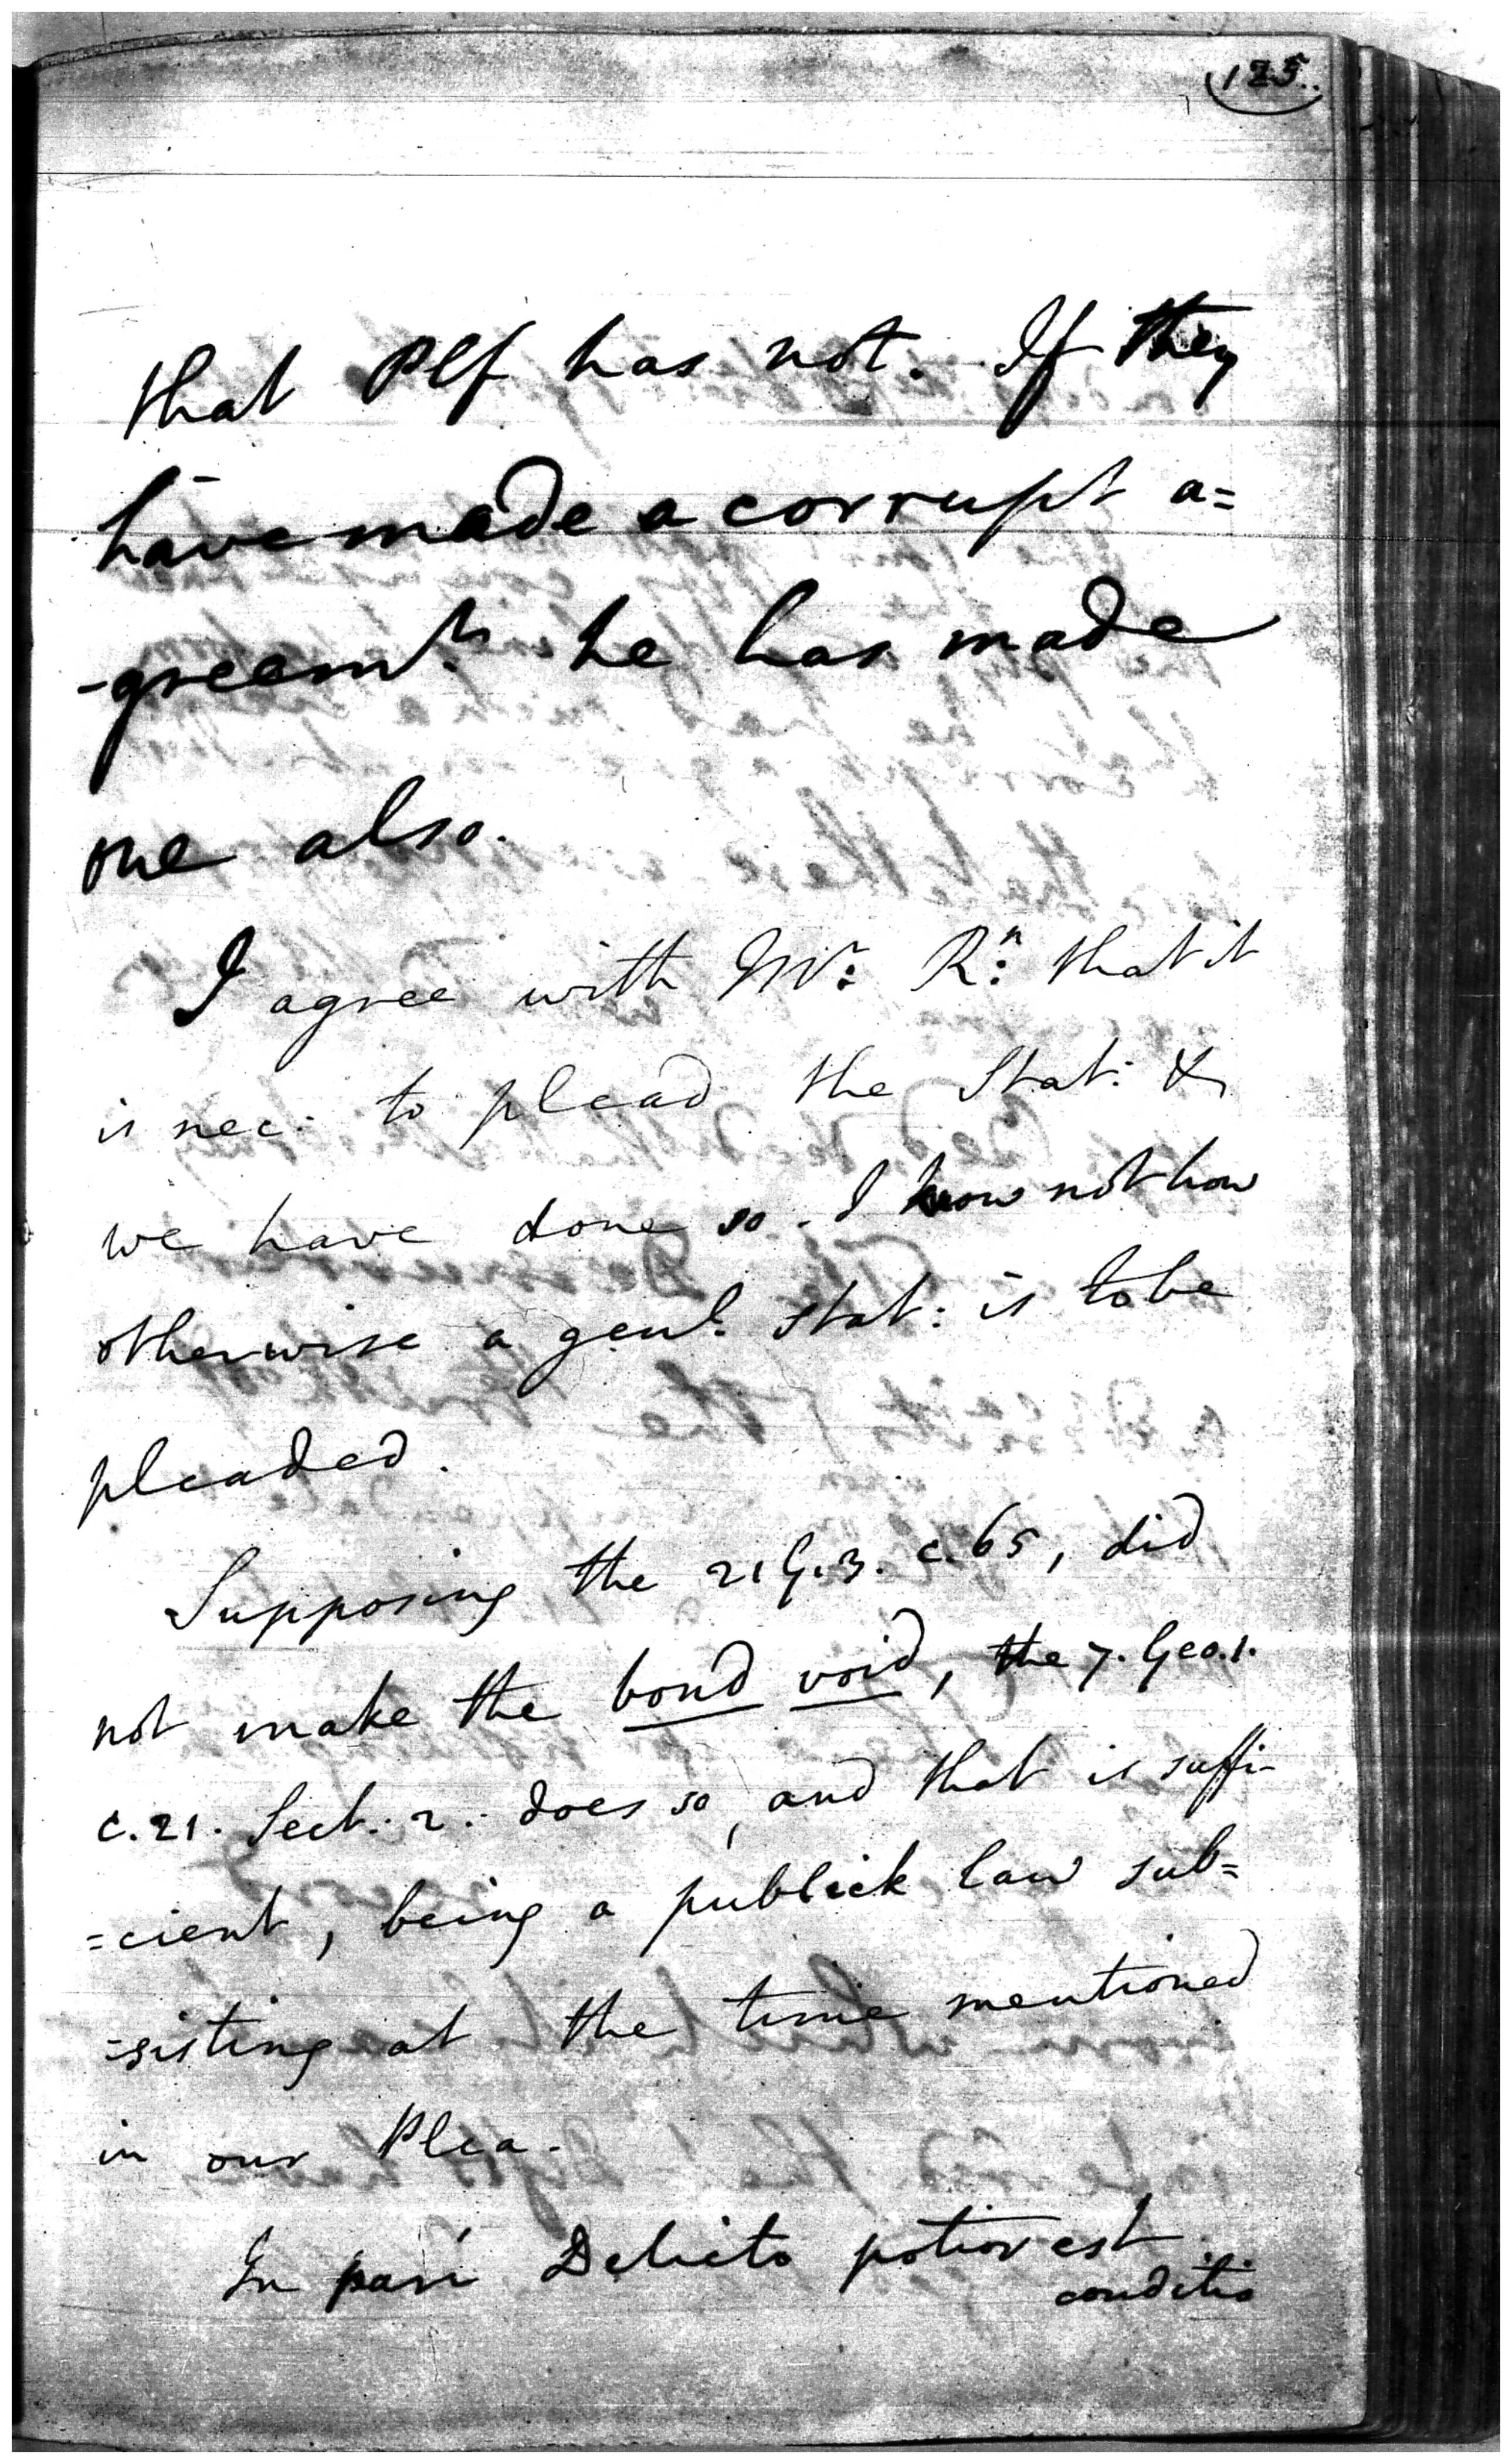 125..
that Plf has not. If they
have made a corrupt a=
-greemt. he has made
one also.
I agree with Mr: Rn: that it
is nec: to plead the Stat: &
we have done so. I know not how
otherwise a genl. stat: is to be
pleaded.
Supposing the 21 G. 3. c. 65, did
not make the bond void, the 7. Geo. 1.
c. 21. Sect. 2. does so, and that is suffi-
=cient, being a publick law sub=
=sisting at the time mentioned
in our Plea.
In pari Delicto potior est
conditio